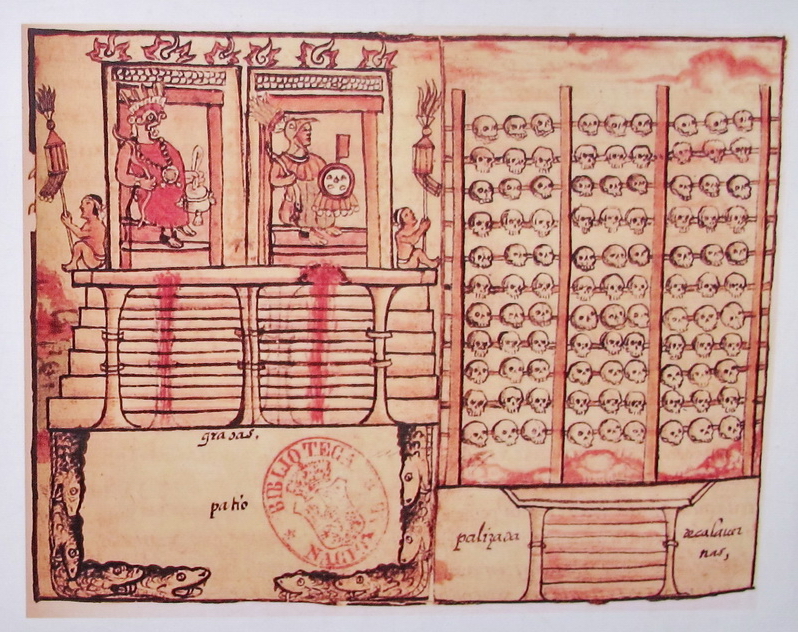 gradas,
patio
BIBLIOTECA
palizada
decalauer
nas,